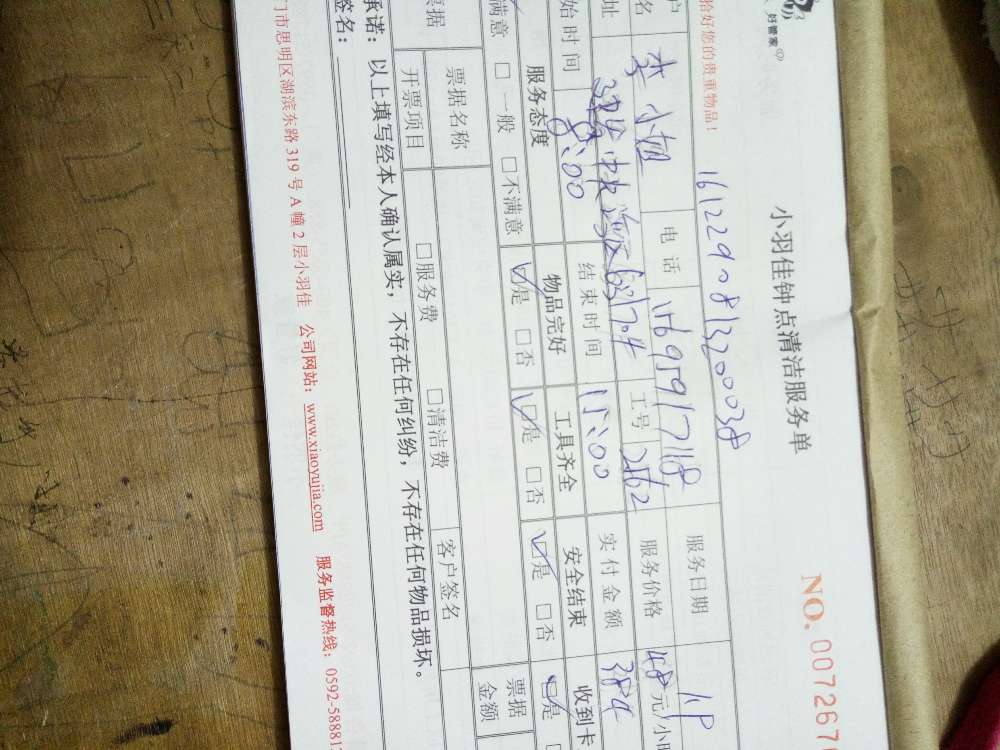 好管家
小羽佳钟点清洁服务单
NO. 007267
恰好您的贵重物品！
1612290813200038
户名 李小姐 电话 15695917168 服务日期
址 中央 63 1704 工号 2162 服务价格 48 元/小时
始时间 8:00 结束时间 15:00 实付金额 384
服务态度 物品完好 工具齐全 安全结束 收到卡
满意 □一般 □不满意 ☑是 □否 ☑是 □否 ☑是 □否 ☑是
票据 票据名称 □服务费 □清洁费 客户签名 票据金额
开票项目
承诺：以上填写经本人确认属实，不存在任何纠纷，不存在任何物品损坏。
签名：
门市思明区湖滨东路 319 号 A 幢 2 层小羽佳 公司网站：www.xiaoyujia.com 服务监督热线：0592-58881